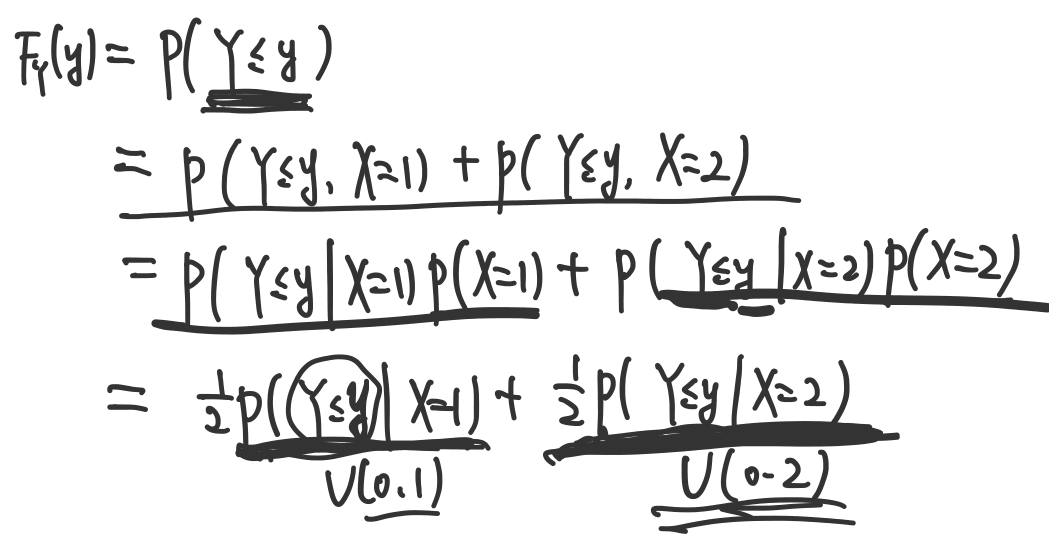 F_Y(y) = P(Y≤y)
= P(Y≤y, X=1) + P(Y≤y, X=2)
= P(Y≤y|X=1)P(X=1) + P(Y≤y|X=2)P(X=2)
= 1/2 P(Y≤y|X=1) + 1/2 P(Y≤y|X=2)
U(0,1) U(0-2)